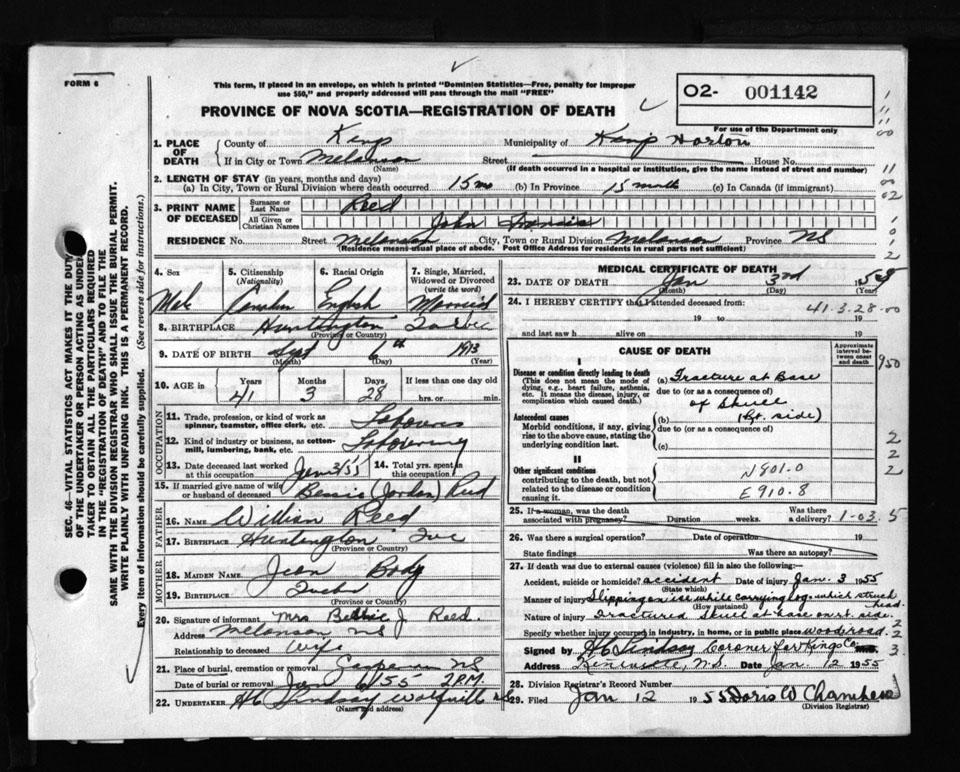 FORM 6
This form, if placed in an envelope, on which is printed "Dominion Statistics—Free, penalty for improper
use $50," and properly addressed will pass through the mail "FREE"
PROVINCE OF NOVA SCOTIA—REGISTRATION OF DEATH
O2- 001142
For use of the Department only
SEC. 46—VITAL STATISTICS ACT MAKES IT THE DUTY
OF THE UNDERTAKER OR PERSON ACTING AS UNDER-
TAKER TO OBTAIN ALL THE PARTICULARS REQUIRED
IN THE "REGISTRATION OF DEATH" AND TO FILE THE
SAME WITH THE DIVISION REGISTRAR WHO SHALL ISSUE THE BURIAL PERMIT.
WRITE PLAINLY WITH UNFADING INK. THIS IS A PERMANENT RECORD.
Every item of information should be carefully supplied. (See reverse side for instructions.)
1. PLACE OF DEATH County of Kings Municipality of Kings Horton
If in City or Town Melanson Street House No.
(Name) (If death occurred in a hospital or institution, give the name instead of street and number)
2. LENGTH OF STAY (in years, months and days)
(a) In City, Town or Rural Division where death occurred 15 mo (b) In Province 15 month (c) In Canada (if immigrant)
3. PRINT NAME OF DECEASED Surname or Last Name Reed
All Given or Christian Names John Francis
RESIDENCE No. Street Melanson City, Town or Rural Division Melanson Province NS
(Residence means usual place of abode. Post Office Address for residents in rural parts not sufficient)
4. Sex 5. Citizenship (Nationality) 6. Racial Origin 7. Single, Married, Widowed or Divorced (write the word)
Male Canadian English Married
8. BIRTHPLACE Huntington Quebec
(Province or Country)
9. DATE OF BIRTH Sept 6th 1913
(Month) (Day) (Year)
10. AGE in Years Months Days If less than one day old
41 3 28 hrs. or min.
OCCUPATION
11. Trade, profession, or kind of work as
spinner, teamster, office clerk, etc. Labourer
12. Kind of industry or business, as cotton-
mill, lumbering, bank, etc. Labouring
13. Date deceased last worked
at this occupation Jan 3/55 14. Total yrs. spent in
this occupation
15. If married give name of wife
or husband of deceased Bessie (Jordon) Reed
FATHER
16. NAME William Reed
17. BIRTHPLACE Huntington Que
(Province or Country)
MOTHER
18. MAIDEN NAME Jean Body
19. BIRTHPLACE Quebec
(Province or Country)
20. Signature of informant Mrs Bessie J. Reed.
Address Melanson NS
Relationship to deceased Wife
21. Place of burial, cremation or removal NS
Date of burial or removal Jan 6/55 2 P.M.
22. UNDERTAKER H C Lindsay Wolfville NS
(Name and address)
MEDICAL CERTIFICATE OF DEATH
23. DATE OF DEATH Jan 3rd 1955
(Month) (Day) (Year)
24. I HEREBY CERTIFY that I attended deceased from:
41.3.28.00
19 to 19
and last saw h alive on 19
CAUSE OF DEATH
Approximate interval between onset and death
I
Disease or condition directly leading to death
(This does not mean the mode of
dying, e.g., heart failure, asthenia,
etc. It means the disease, injury, or
complication which caused death.)
(a) Fracture at Base
due to (or as a consequence of)
of Skull
Antecedent causes
Morbid conditions, if any, giving
rise to the above cause, stating the
underlying condition last.
(b) (Rt. side)
due to (or as a consequence of)
(c)
II
Other significant conditions
contributing to the death, but not
related to the disease or condition
causing it.
N801.0
E910.8
25. If a woman, was the death
associated with pregnancy? Duration weeks. Was there
a delivery? 1-03.5
26. Was there a surgical operation? Date of operation 19
State findings Was there an autopsy?
27. If death was due to external causes (violence) fill in also the following:—
Accident, suicide or homicide? accident Date of injury Jan. 3 1955
(State which)
Manner of injury Slipping on ice while carrying log which struck head.
(How sustained)
Nature of injury Fractured Skull at base on rt. side
Specify whether injury occurred in industry, in home, or in public place wood road.
Signed by H C Lindsay Coroner for Kings Co.
Address Kentville, N.S. Date Jan. 12 1955
28. Division Registrar's Record Number
29. Filed Jan 12 1955 Doris W Chambers
(Division Registrar)